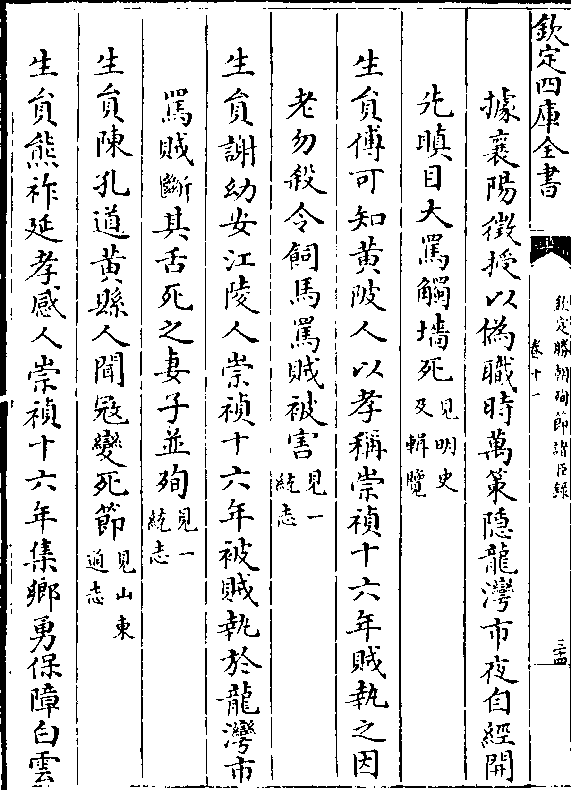 欽定四庫全書
欽定勝朝殉節諸臣録
卷十一
三十四
據襄陽徵授以偽職時萬策隱龍灣市夜自經開
先瞋目大罵觸墻死見明史及輯覽
生員傅可知黃陂人以孝稱崇禎十六年賊執之因
老勿殺令飼馬罵賊被害見一統志
生員謝幼安江陵人崇禎十六年被賊執於龍灣市
罵賊斷其舌死之妻子並殉見一統志
生員陳孔道黃縣人聞冦變死節見山東通志
生員熊祚延孝感人崇禎十六年集鄉勇保障白雲